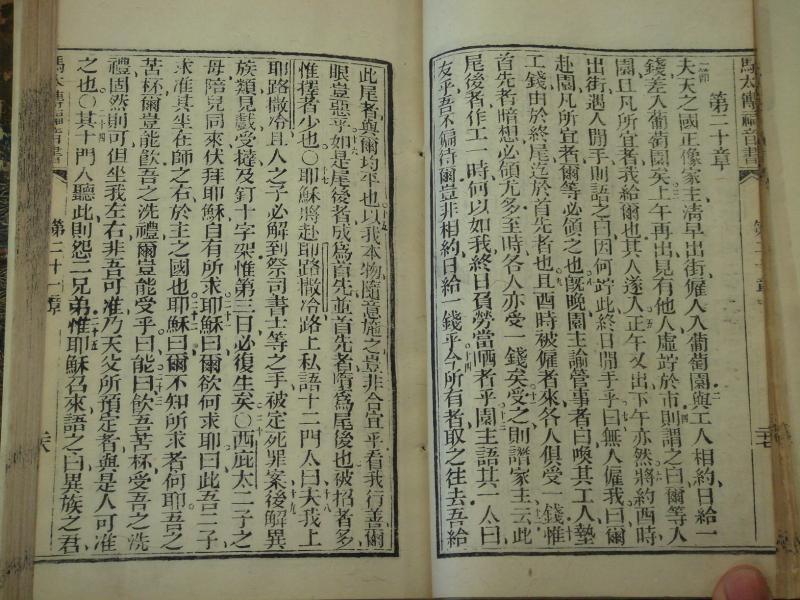 馬太傳福音書
第二十章
夫天之國正像家主清早出街僱人入葡萄園與工人相約日給一
錢差入葡萄園矣上午再出見有他人虛竚於市則謂之曰爾等入
園且凡所宜者我給爾也其人遂入正午又出下午亦然將約酉時
出街遇人閒乎則語之曰因何竚此終日閒乎乎曰無人僱我曰爾
赴園凡所宜者爾等必領之也旣晚園主諭管事者曰喚其工人墊
工錢由於終尾迄於首先者也且酉時被僱者來各人俱受一錢惟
首先者暗想必領尤多至時各人亦受一錢矣受之則讟家主云此
尾後者作工一時何以如我終日負勞當晒者乎園主語其一人曰
友乎吾不偏待爾豈非相約日給一錢乎今所有者取之往去吾給
此尾者與爾均平也以我本物隨意施之豈非合宜乎看我行善爾
眼豈惡乎如是尾後者成爲首先並首先者墮爲尾後也被招者多
惟擇者少也〇耶穌將赴耶路撒冷路上私語十二門人曰夫我上
耶路撒冷且人之子必解到祭司書士等之手被定死罪案後解異
族類見戲受撻及釘十字架惟第三日必復生矣〇西庇太二子之
母陪兒同來伏拜耶穌自有所求耶穌曰爾欲何求耶曰此吾二子
求准其坐在師之右於主之國也耶穌曰爾不知所求者何耶吾之
苦杯爾豈能飮吾之洗禮爾豈能受乎曰能曰飮吾苦杯受吾之洗
禮固然則可但坐我左右非吾可准乃天父所預定者與是人可准
之也〇其十門人聽此則怨二兄弟惟耶穌召來語之曰異族之君
馬太傳福音書
第二十一章